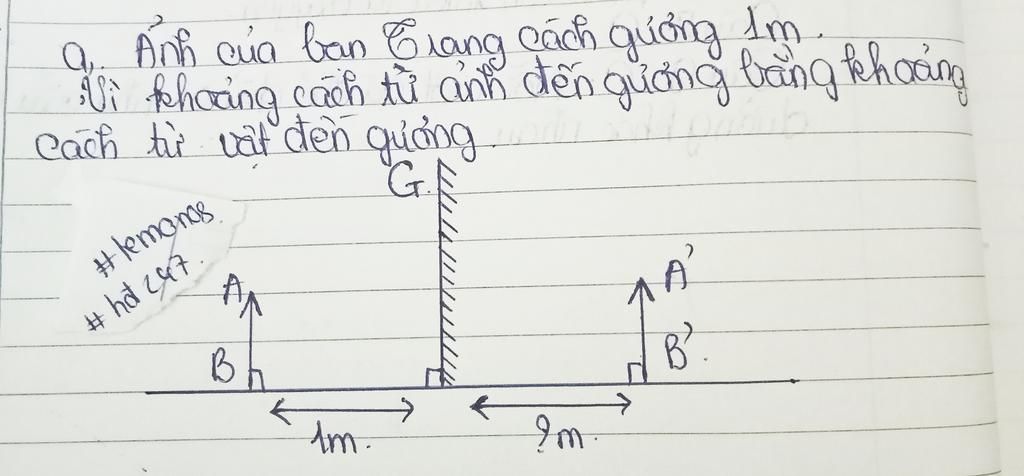 a, Ảnh của bạn Giang cách gương 1m.
Vì khoảng cách từ ảnh đến gương bằng khoảng
cách từ vật đến gương.
G
#lemonos
#hđ247.
A
A'
B
B'.
1m.
?m.